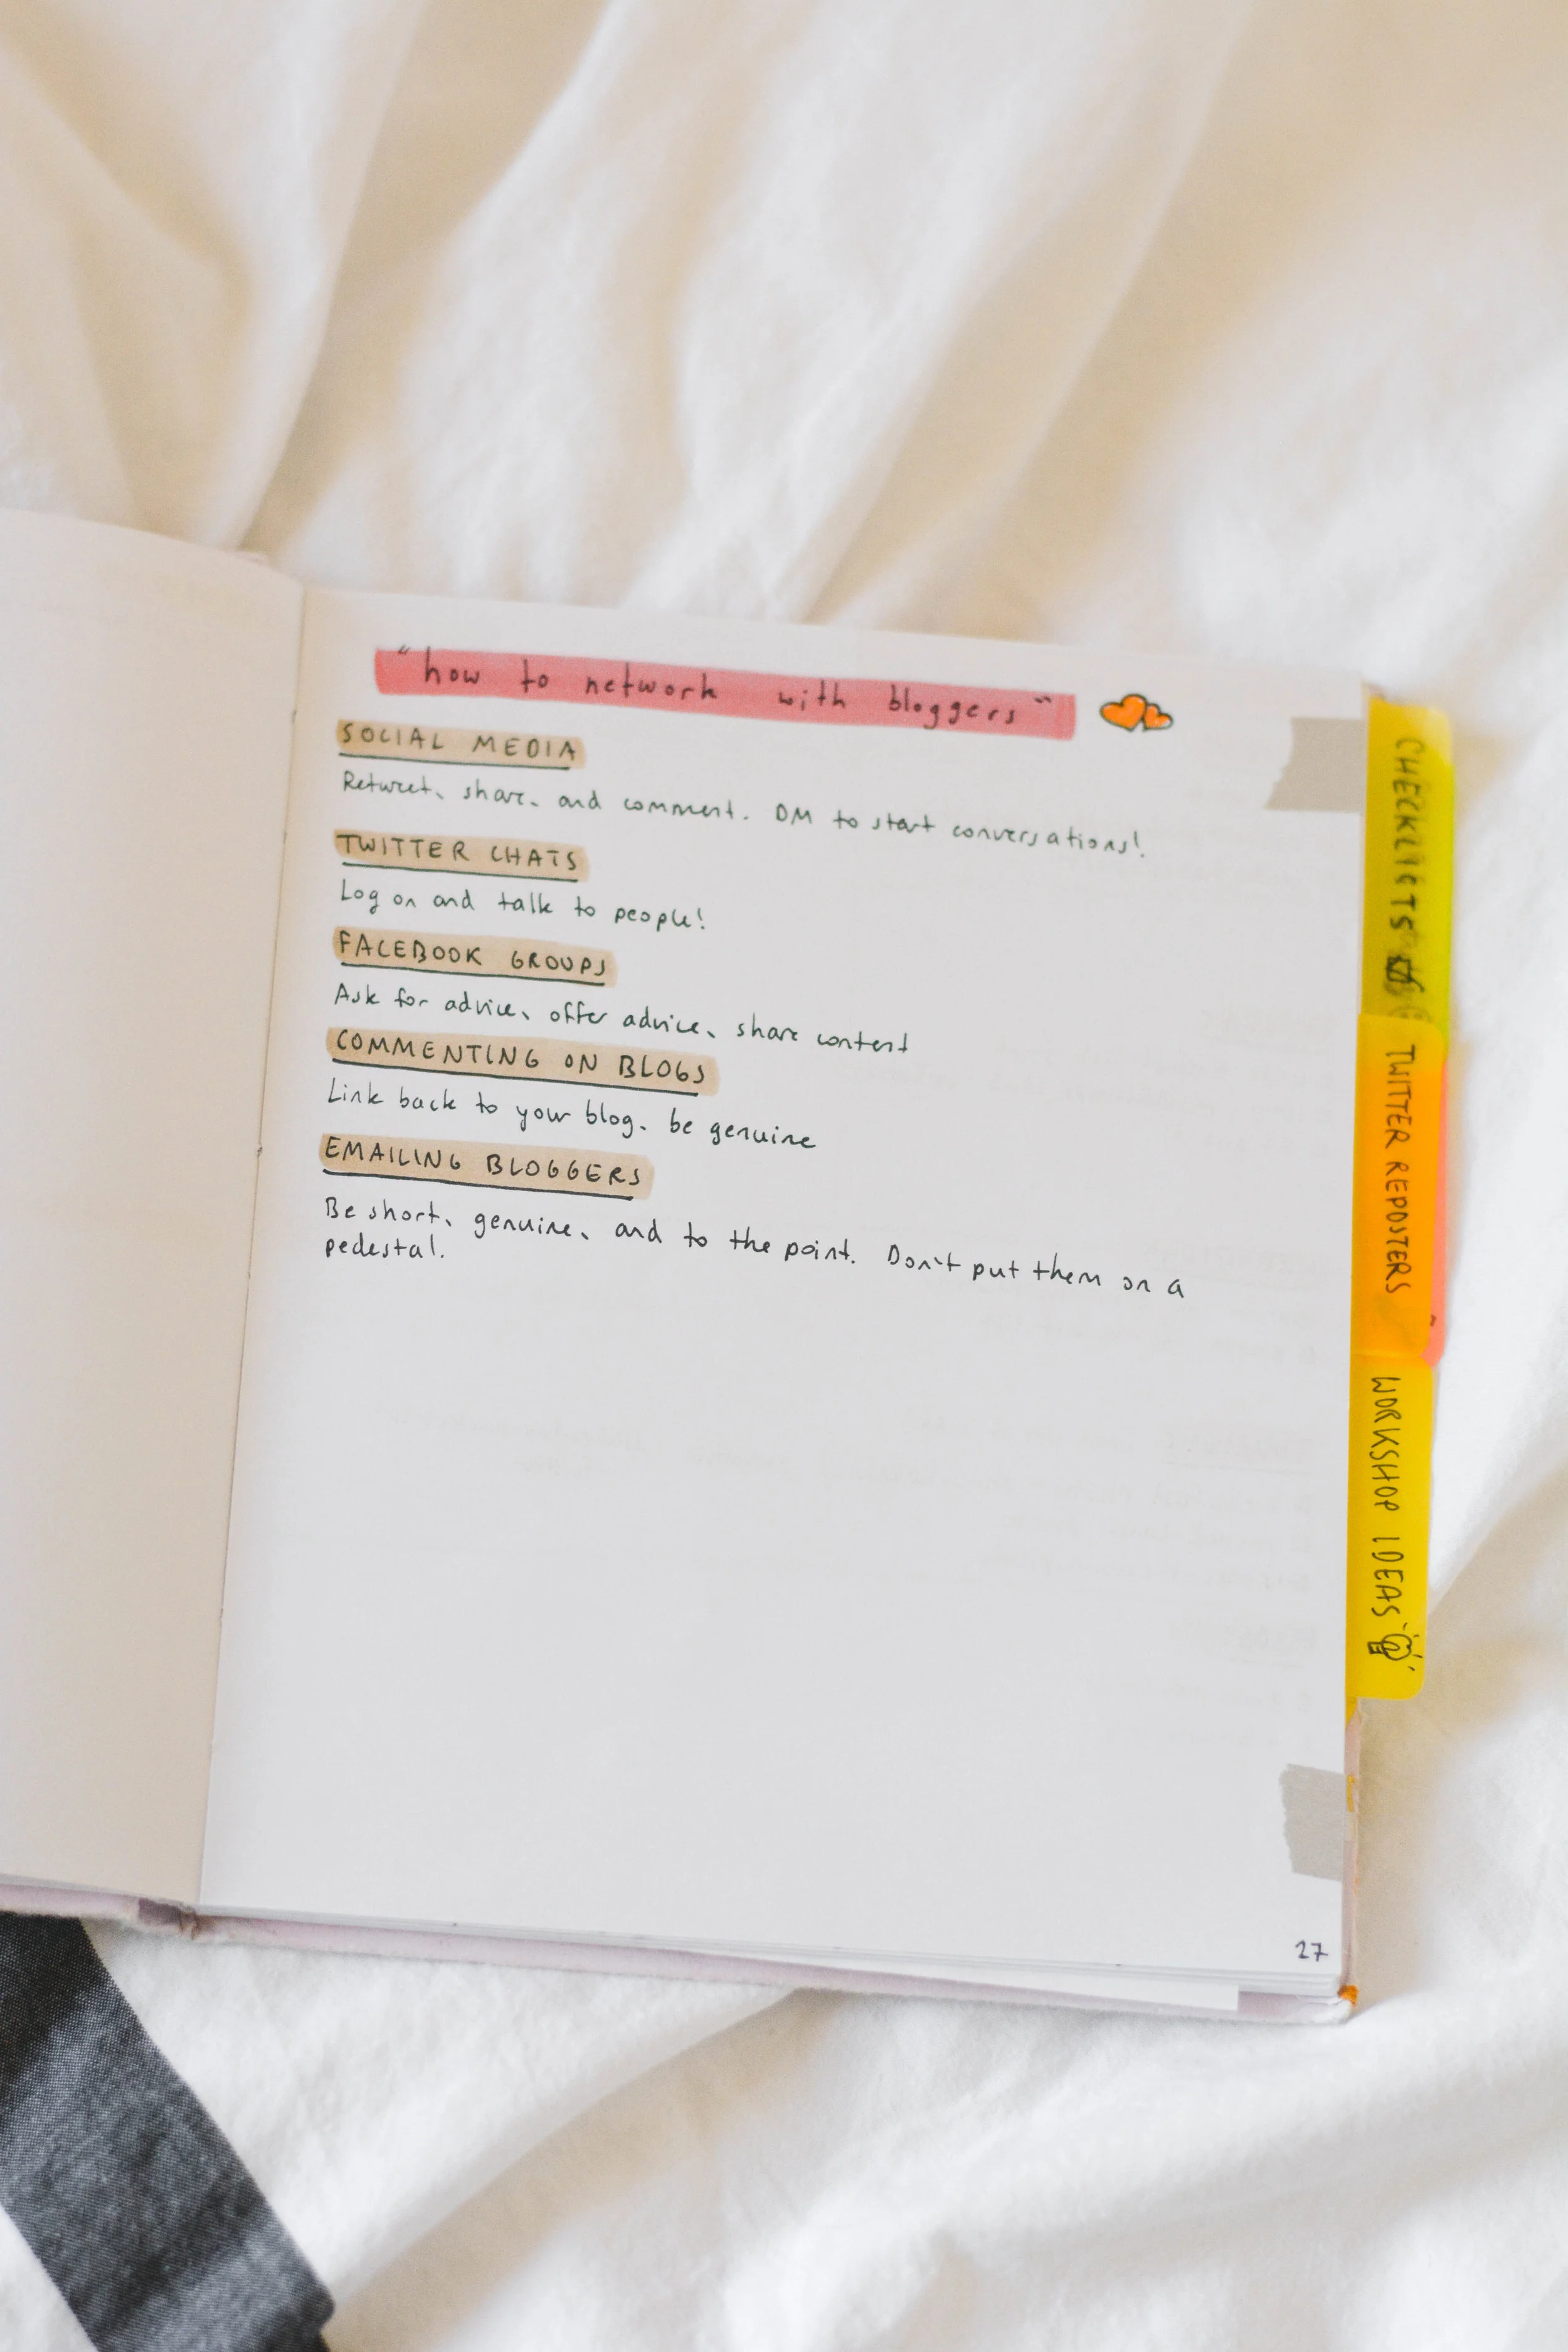 "how to network with bloggers"
SOCIAL MEDIA
Retweet, share, and comment. DM to start conversations!
TWITTER CHATS
Log on and talk to people!
FACEBOOK GROUPS
Ask for advice, offer advice, share content
COMMENTING ON BLOGS
Link back to your blog, be genuine
EMAILING BLOGGERS
Be short, genuine, and to the point. Don't put them on a
pedestal.
27
CHECKLISTS
TWITTER REPOSTERS
WORKSHOP IDEAS